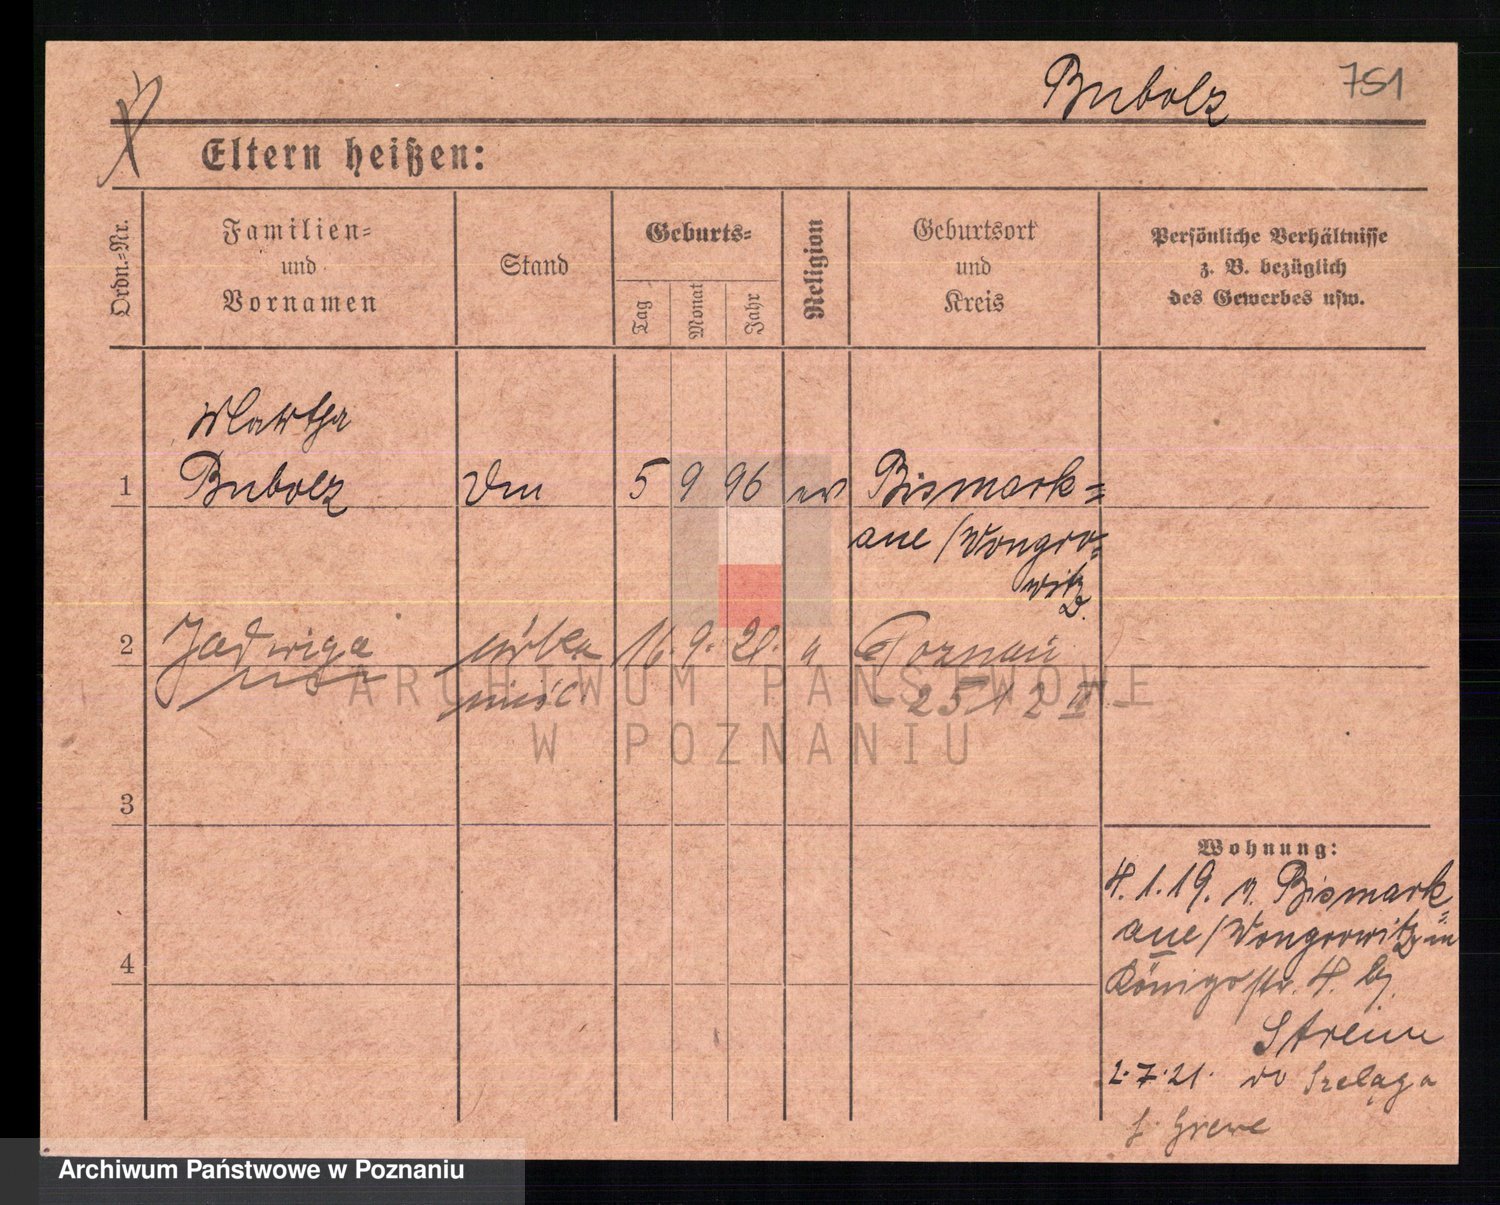 Bubolz 751
Eltern heißen:
Ordn.=Nr.
Familien=
und
Vornamen
Stand
Geburts=
Tag
Monat
Jahr
Religion
Geburtsort
und
Kreis
Persönliche Verhältnisse
z. B. bezüglich
des Gewerbes usw.
Martha
1 Bubolz 5 9 96 ev Bismark=
aue / Wongro=
witz
2 Jadwiga córka 16. 9. 20. Poznań
25/12
3
4
Wohnung:
4. 1. 19. v. Bismark=
aue / Wongrowitz in
Königsstr. 4. bj.
2.7.21. do Szeląga
f. Grewe
ARCHIWUM PAŃSTWOWE
W POZNANIU
Archiwum Państwowe w Poznaniu